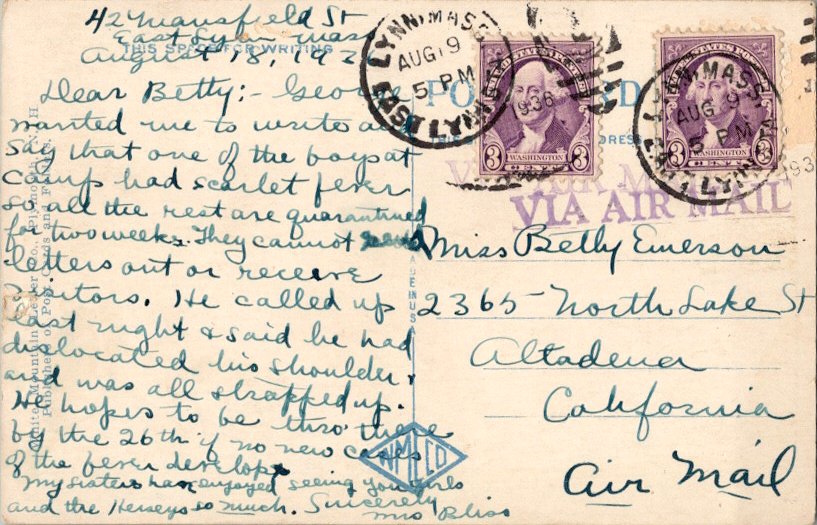 42 Mansfield St
East Lynn Mass
THIS SPACE FOR WRITING
August 18, 193
Dear Betty:- George
wanted me to write and
say that one of the boys at
camp had scarlet fever
so all the rest are quarantined
for two weeks. They cannot send
letters out or receive
visitors. He called up
last night & said he had
dislocated his shoulder
and was all strapped up.
He hopes to be thro' there
by the 26th if no new cases
of the fever develope
My sisters have enjoyed seeing you girls
and the Herseys so much. Sincerely
Mrs Bliss
White Mountain
Publishers of Post Cards and
MADE IN USA
WMLCO
LYNN, MASS
AUG 19
5 PM
1936
EAST LYNN STA
UNITED STATES POSTAGE
3 WASHINGTON 3
LYNN, MASS
AUG 19
5 PM
193
EAST LYNN STA
UNITED STATES POSTAGE
3 WASHINGTON 3
VIA AIR MAIL
VIA AIR MAIL
Miss Betty Emerson
2365 North Lake St
Altadena
California
Air Mail